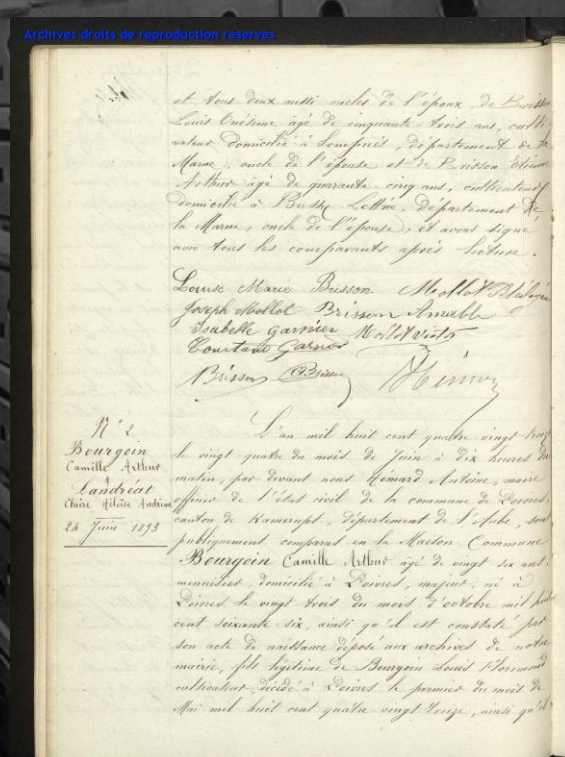 Archives droits de reproduction réservés
et tous deux aussi oncles de l'époux, de Brisson
Louis Onésime âgé de cinquante trois ans, culti
vateur domicilié à Sompuis, département de la
Marne, oncle de l'épouse et de Brisson Etienne
Arthur âgé de quarante cinq ans, cultivateur
domicilié à Bussy Lettrée, département de
la Marne, oncle de l'épouse, et avons signé
avec tous les comparants après lecture.
Louise Marie Brisson Mollot
Joseph Mollot Brisson
Isabelle Garnier Mollot
Constant Garnier
Brisson Brisson Hémard
N° 2
Bourgoin
Camille Arthur
&
Landréat
Claire Héloïse
24 Juin 1893
L'an mil huit cent quatre-vingt-treize
le vingt quatre du mois de Juin à dix heures du
matin, par devant nous Hémard Antoine, maire
officier de l'état civil de la commune de Poivres
canton de Ramerupt, département de l'Aube, sont
publiquement comparus en la Maison Commune
Bourgoin Camille Arthur âgé de vingt six ans,
menuisier, domicilié à Poivres, majeur, né à
Poivres le vingt trois du mois d'octobre mil huit
cent soixante-six, ainsi qu'il est constaté par
son acte de naissance déposé aux archives de notre
mairie, fils légitime de Bourgoin Louis Florimond
cultivateur décédé à Poivres le premier du mois de
Mai mil huit cent quatre-vingt treize, ainsi qu'il